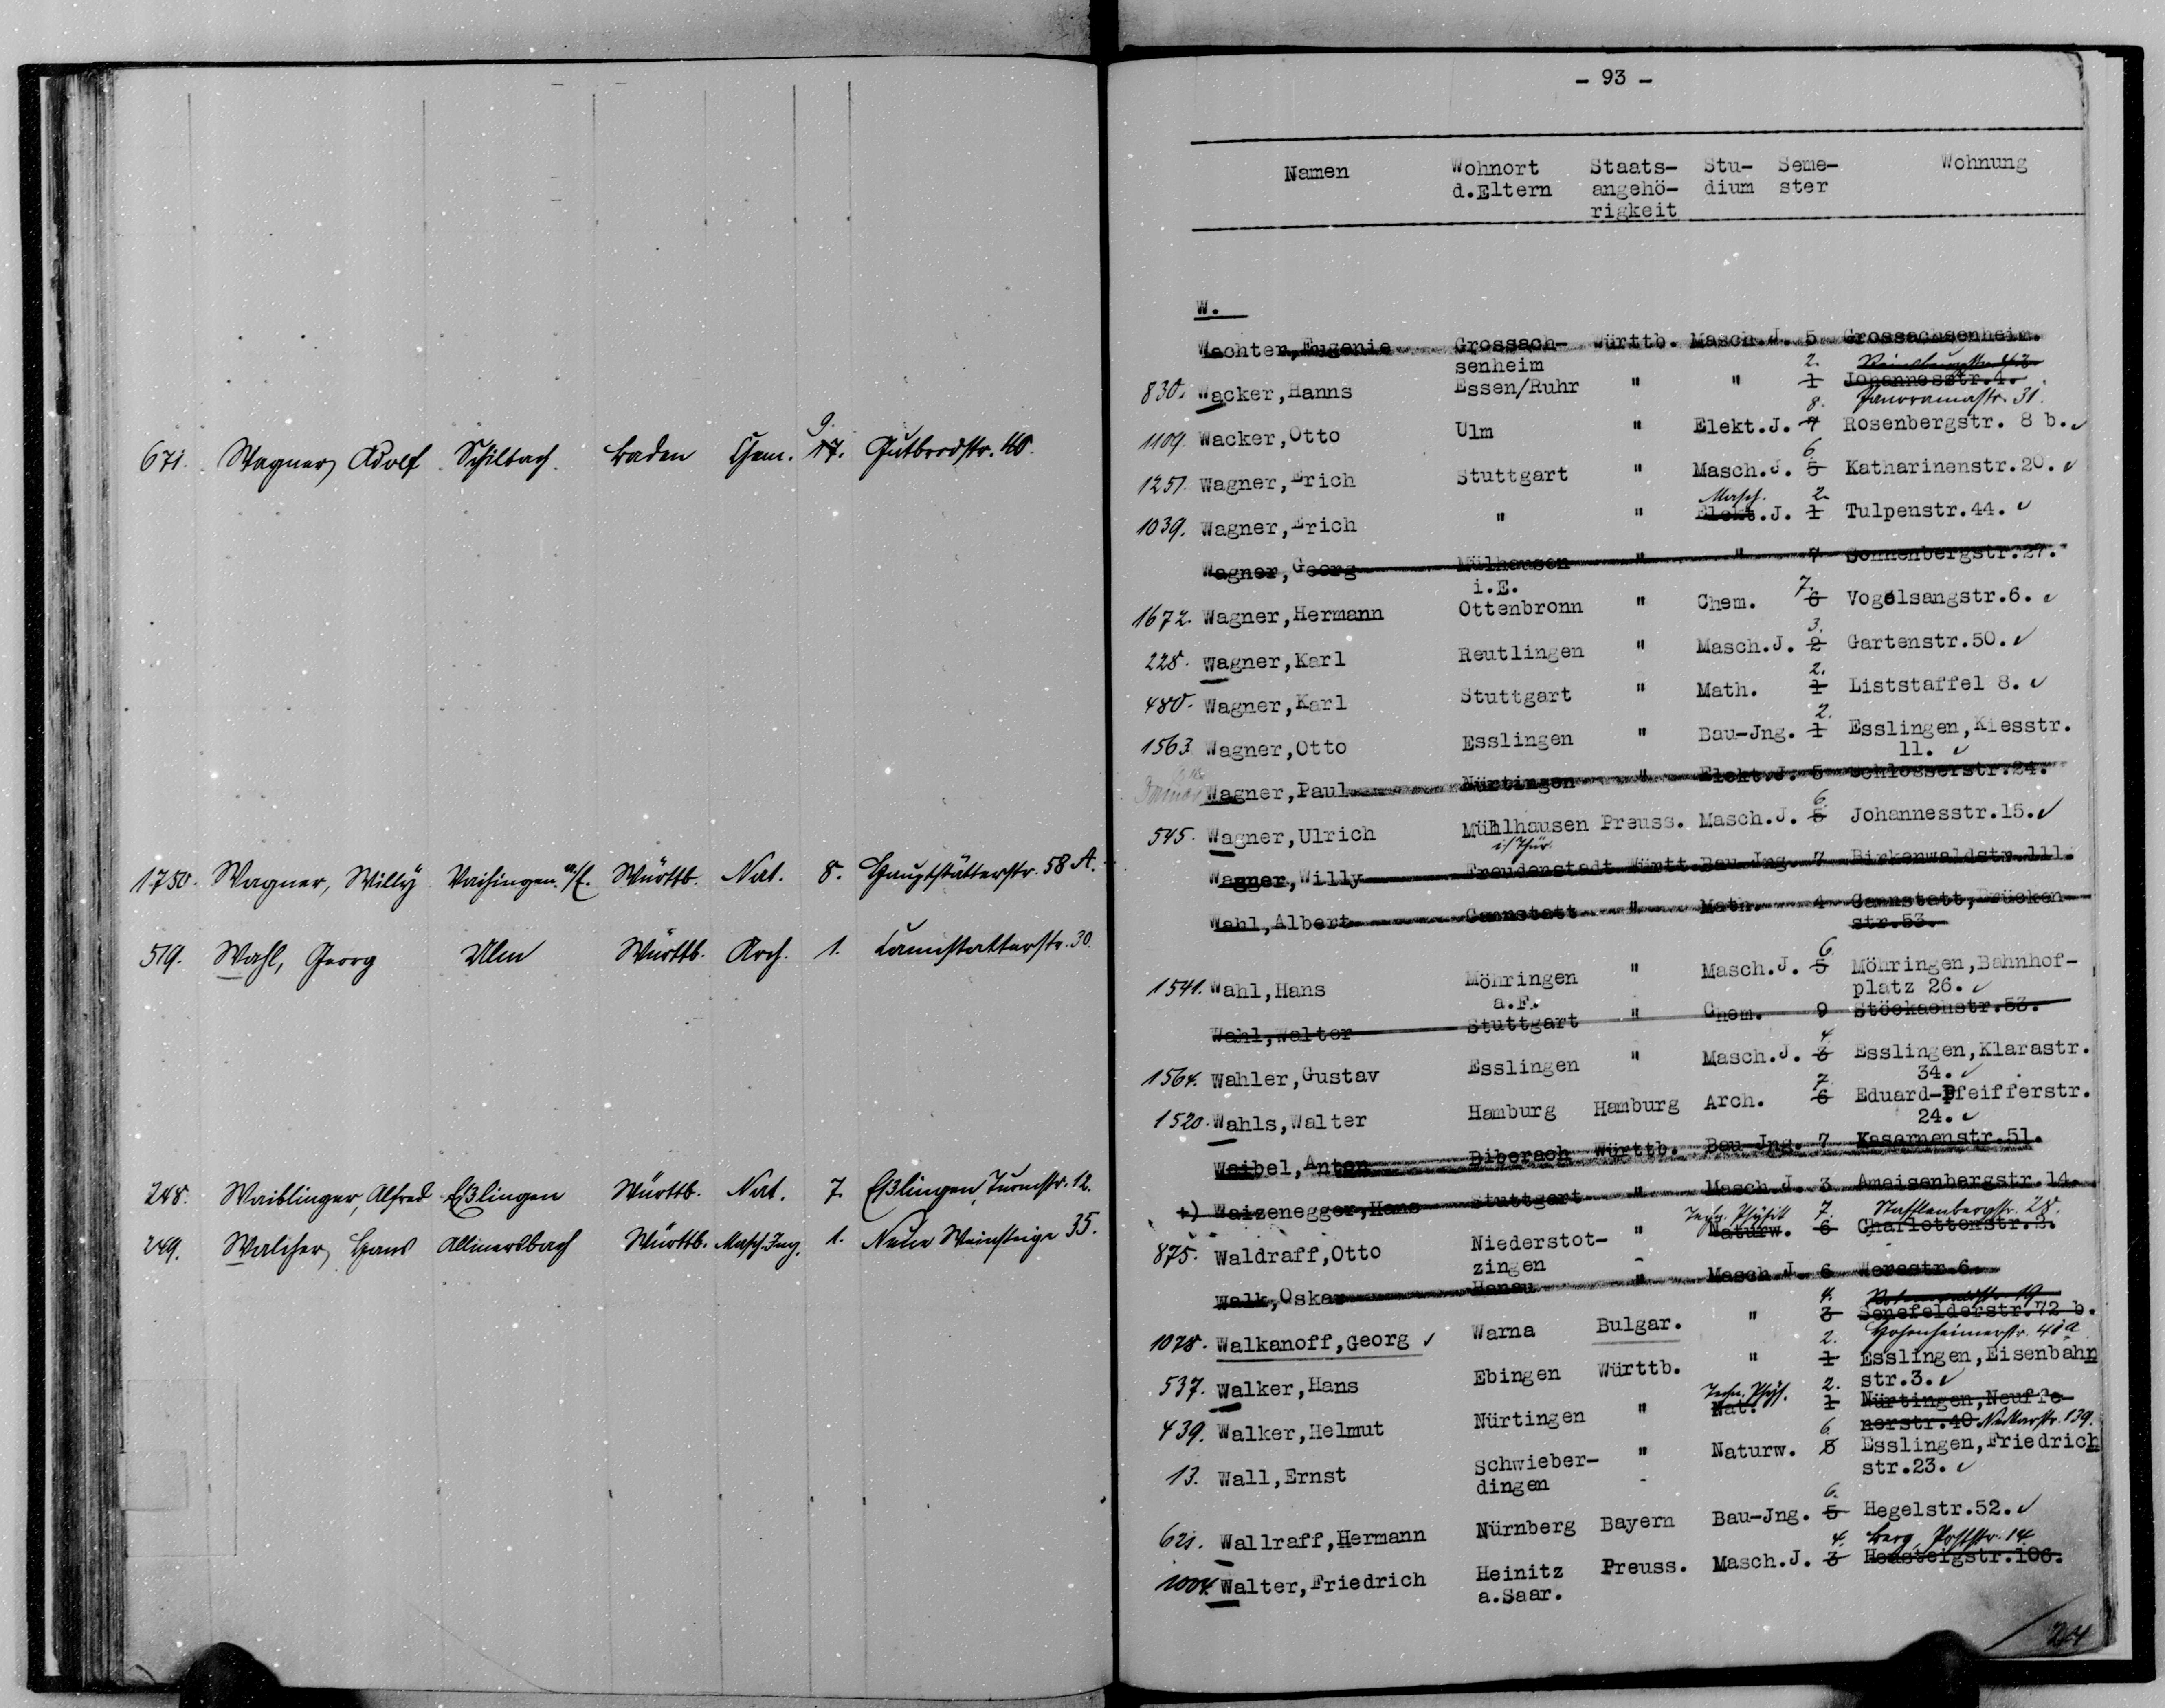 671. Wagner, Adolf Schilbach. Baden Chem. 17. 9. Gutbrodstr. 40.
1750. Wagner, Willy Vaihingen a/E. Württb. Nat. 8. Hauptstätterstr. 58 A.
519. Wahl, Georg Ulm Württb. Arch. 1. Cannstatterstr. 30.
248. Waiblinger, Alfred Eßlingen Württb. Nat. 7. Eßlingen, Turmstr. 12.
249. Walcher, Hans Allmersbach Württb. Masch. Ing. 1. Neue Weinsteige 35.
- 93 -
Namen Wohnort Staats- Stu- Seme- Wohnung
d.Eltern angehö- dium ster
rigkeit
W.
Wachter,Eugenie Grossach- Württb. Masch.J. 5 Grossachsenheim.
senheim 2.
830. Wacker,Hanns Essen/Ruhr " " 1 Johannesstr.4.
8. Panoramastr. 31.
1109. Wacker,Otto Ulm " Elekt.J. 7 Rosenbergstr. 8 b.
6.
1251. Wagner,Erich Stuttgart " Masch.J. 5 Katharinenstr.20.
Masch. 2.
1039. Wagner,Erich " " Elekt.J. 1 Tulpenstr.44.
Wagner,Georg Mülhausen " " 7 Sonnenbergstr.27.
i.E. 7.
1672. Wagner,Hermann Ottenbronn " Chem. 6 Vogelsangstr.6.
3.
228. Wagner,Karl Reutlingen " Masch.J. 2 Gartenstr.50.
2.
480. Wagner,Karl Stuttgart " Math. 1 Liststaffel 8.
2.
1563 Wagner,Otto Esslingen " Bau-Jng. 1 Esslingen,Kiesstr.
11.
Wagner,Paul Nürtingen " Elekt.J. 5 Schlosserstr.24.
6.
545. Wagner,Ulrich Mühlhausen Preuss. Masch.J. 5 Johannesstr.15.
i/Thür.
Wagner,Willy Freudenstadt Württ. Bau-Jng. 7 Birkenwaldstr.111.
Wahl,Albert Cannstatt " Math. 4 Cannstatt,Brücken-
str.53.
6.
1541. Wahl,Hans Möhringen " Masch.J. 5 Möhringen,Bahnhof-
a.F. platz 26.
Wahl,Walter Stuttgart " Chem. 9 Stöckachstr.53.
4.
1564. Wahler,Gustav Esslingen " Masch.J. 3 Esslingen,Klarastr.
7. 34.
1520. Wahls,Walter Hamburg Hamburg Arch. 6 Eduard-Pfeifferstr.
24.
Waibel,Anton Biberach Württb. Bau-Jng. 7 Kasernenstr.51.
+) Waizenegger,Hans Stuttgart " Masch.J. 3 Ameisenbergstr.14.
Techn. Physik 7. Stafflenbergstr. 28.
875. Waldraff,Otto Niederstot- " Naturw. 6 Charlottenstr.3.
zingen
Walk,Oskar Hanau " Masch.J. 6 Werastr.6.
4.
1078. Walkanoff,Georg Warna Bulgar. " 3 Senefelderstr.72 b.
2. Hohenheimerstr. 40a
537. Walker,Hans Ebingen Württb. " 1 Esslingen,Eisenbahn
str.3.
Techn. Phys. 2.
439. Walker,Helmut Nürtingen " Nat. 1 Nürtingen,Neuffe-
nerstr.40 Neckarstr. 139.
6.
13. Wall,Ernst Schwieber- " Naturw. 5 Esslingen,Friedrich
dingen str.23.
6.
621. Wallraff,Hermann Nürnberg Bayern Bau-Jng. 5 Hegelstr.52.
4. Berg, Poststr. 14.
1004. Walter,Friedrich Heinitz Preuss. Masch.J. 3 Heusteigstr.106.
a.Saar.